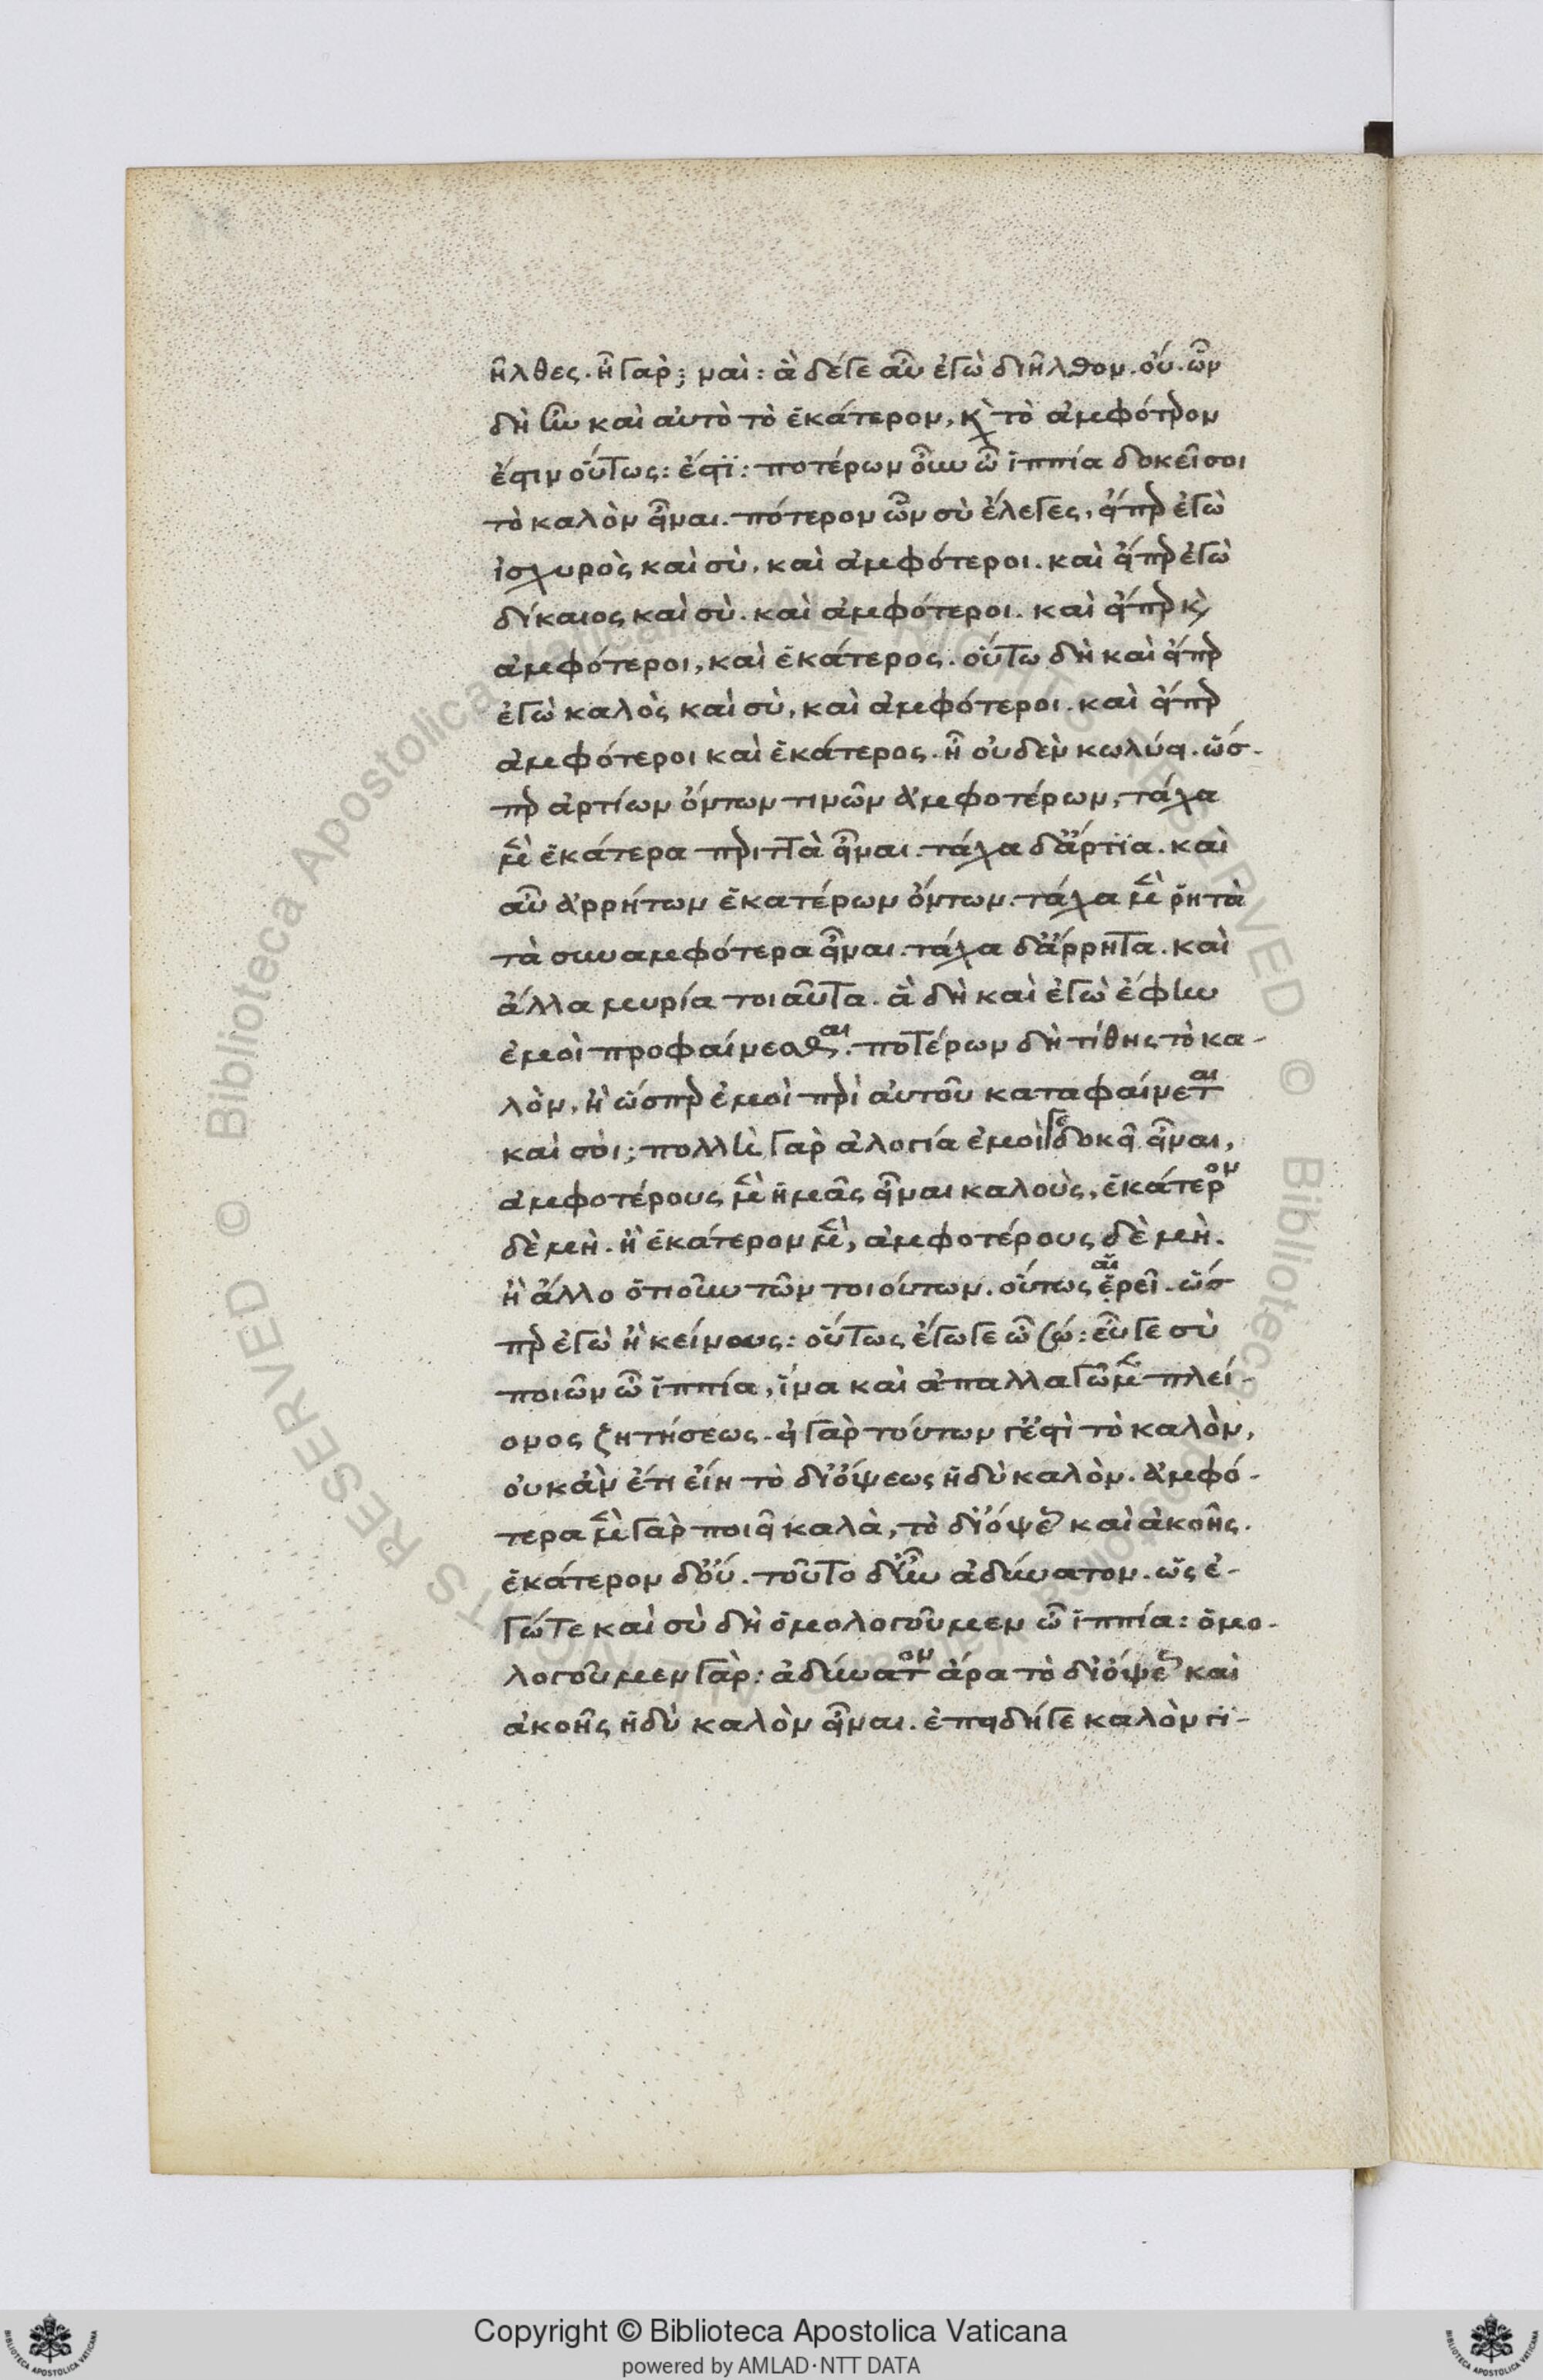 ῆλθες. ἦ γάρ; ναί: ἃ δέ γε αὖ ἐγὼ διῆλθον. οὔ. ὧν
δὴ ἦν καὶ αὐτὸ τὸ ἑκάτερον, κ τὸ ἀμφότερον
ἔστιν οὕτως: ἔστι: ποτέρων οὖν ὦ ἱππία δοκεῖ σοι
τὸ καλὸν εἶναι. πότερον ὧν σὺ ἔλεγες, εἴπερ ἐγὼ
ἰσχυρὸς καὶ σὺ, καὶ ἀμφότεροι. καὶ εἴπερ ἐγὼ
δίκαιος καὶ σὺ. καὶ ἀμφότεροι. καὶ εἴπερ κ
ἀμφότεροι, καὶ ἑκάτερος. οὕτω δὴ καὶ εἴπερ
ἐγὼ καλὸς καὶ σὺ, καὶ ἀμφότεροι. καὶ εἴπερ
ἀμφότεροι καὶ ἑκάτερος. ἢ οὐδὲν κωλύει. ὥσ-
περ ἀρτίων ὄντων τινῶν ἀμφοτέρων, τάχα
μὲν ἑκάτερα περιττὰ εἶναι. τάχα δ' ἄρτια. καὶ
αὖ ἀρρήτων ἑκατέρων ὄντων. τάχα μὲν ῥητὰ
τὰ συναμφότερα εἶναι. τάχα δ' ἄρρητα. καὶ
ἄλλα μυρία τοιαῦτα. ἃ δὴ καὶ ἐγὼ ἔφην
ἐμοὶ προφαίνεσθαι. ποτέρων δὴ τίθης τὸ κα-
λὸν, ἢ ὥσπερ ἐμοὶ περὶ αὐτοῦ καταφαίνεται
καὶ σοι; πολλὴ γὰρ ἀλογία ἐμοὶ γε δοκεῖ εἶναι,
ἀμφοτέρους μὲν ἡμᾶς εἶναι καλοὺς, ἑκάτερον
δὲ μή. ἢ ἑκάτερον μὲν, ἀμφοτέρους δὲ μή.
ἢ ἄλλο ὁτιοῦν τῶν τοιούτων. οὕτως αἱ ἐρεῖ. ὥσ
περ ἐγὼ ἢ κείνους: οὕτως ἔγωγε ὦ σώ: εὖ γε σὺ
ποιῶν ὦ ἱππία, ἵνα καὶ ἀπαλλαγῶμεν πλεί-
ονος ζητήσεως. εἰ γὰρ τούτων γ' ἐστὶ τὸ καλὸν,
οὐκ ἂν ἔτι εἴη τὸ δι' ὄψεως ἡδὺ καλὸν. ἀμφό-
τερα μὲν γὰρ ποιεῖ καλὰ, τὸ δι' ὄψεως καὶ ἀκοῆς.
ἑκάτερον δ' οὔ. τοῦτο δ' ἦν ἀδύνατον. ὡς ἐ-
γώ τε καὶ σὺ δὴ ὁμολογοῦμεν ὦ ἱππία: ὁμο-
λογοῦμεν γὰρ: ἀδύνατον ἄρα τὸ δι' ὄψεως καὶ
ἀκοῆς ἡδὺ καλὸν εἶναι. ἐπειδή γε καλὸν γι-
Copyright © Biblioteca Apostolica Vaticana
powered by AMLAD·NTT DATA